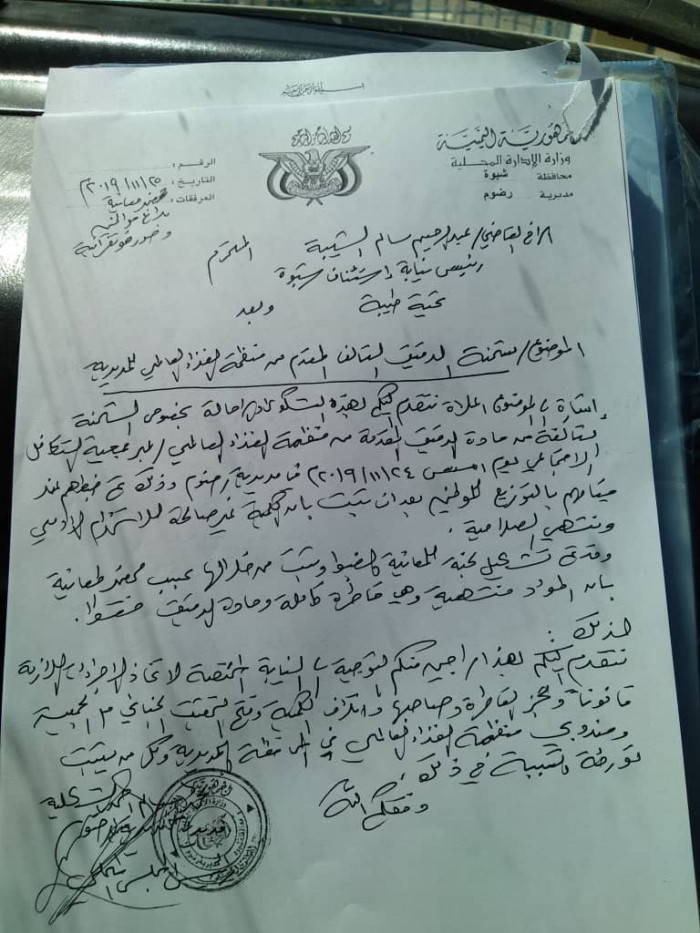 بسم الله الرحمن الرحيم
جمهورية اليمنية
وزارة الإدارة المحلية
محافظة شبوة
مديرية رضوم
الرقم :
التاريخ : ٢٠١٩/١١/٢٥م
المرفقات : محضر معاينة
بلاغ
وصور فوتغرافية
الاخ القاضي/ عبدالرحيم سالم الشيبة المحترم
رئيس نيابة استئناف شبوة
تحية طيبة وبعد
الموضوع/ شحنة الدقيق التالف المقدم من منظمة الغذاء العالمي للمديرية
إشارة بالموضوع اعلاة نتقدم اليكم بهذة الشكوى احالة بخصوص الشحنة
التالفة من مادة الدقيق المقدمة من منظمة الغذاء العالمي/ عبر جمعية التكافل
الاجتماعي يوم امس ٢٠١٩/١١/٢٤م في مديرية رضوم وذلك تم ضبطهم عند
قيامهم بالتوزيع للمواطنين بعد ان تبت بان الكمية غير صالحة للاستخدام الادمي
ومنتهي الصلاحية .
وقد تم تشكيل لجنة للمعاينة والضبط وتبت من خلالها حسب محضر المعاينة
بان المواد منتهية وهي قاطرة كاملة ومادة الدقيق
لذلك :
نتقدم اليكم بهذا راجين منكم التوجية بالنيابة المختصة لاتخاذ الاجراءات اللازمة
قانوناً وحجز القاطرة وصاحبها واتلاف الكمية وفتح التحقيق الجنائي مع الجمعية
ومندوبي منظمة الغذاء العالمي في المحافظة والمديرية وكل من يتبت
تورطة بالتسبب في ذلك ،
وفقكم الله